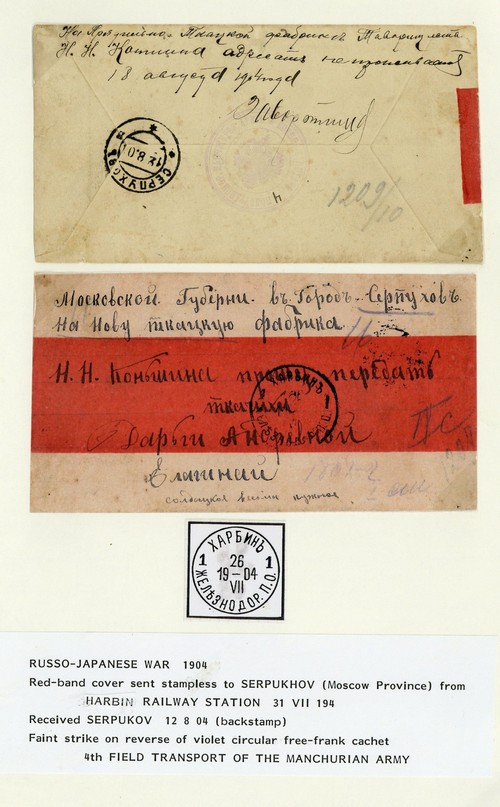 На Прядильно-Ткацкой фабрикъ Товариществ
Н. Н. Коншина адресатъ не проживаетъ
18 августа 1904 года
СЕРПУХОВЪ
12.8.0
4
1209/10
Московской Губерни. въ Городъ-Серпуховъ.
На Нову ткацкую фабрика
Н. Н. Коншина прошу передать
ткачихи
Дарьи Андревной
Елагиний
ХАРБИНЪ
1
26
1 19-04 1
VII
ЖЕЛѢЗНОДОР. П.О.
RUSSO-JAPANESE WAR 1904
Red-band cover sent stampless to SERPUKHOV (Moscow Province) from
HARBIN RAILWAY STATION 31 VII 194
Received SERPUKOV 12 8 04 (backstamp)
Faint strike on reverse of violet circular free-frank cachet
4th FIELD TRANSPORT OF THE MANCHURIAN ARMY